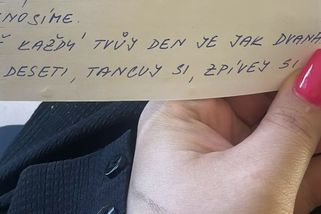 NOSÍME.
KAŽDÝ TVŮJ DEN JE JAK DVANÁ
DESETI, TANCUJ SI, ZPÍVEJ SI